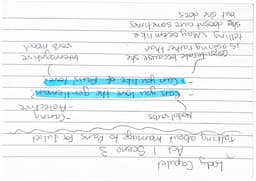 Lady Capulet
Act 1 Scene 3
Talking about marriage to Paris for Juliet
Modal verbs
- Caring
- Protective
- Can you love the gentleman?
- Can you like of Paris' love?
Considerate because she
is asking rather than
telling. May seem like
she doesn't care sometimes
but she does
Interrogative
verb mood